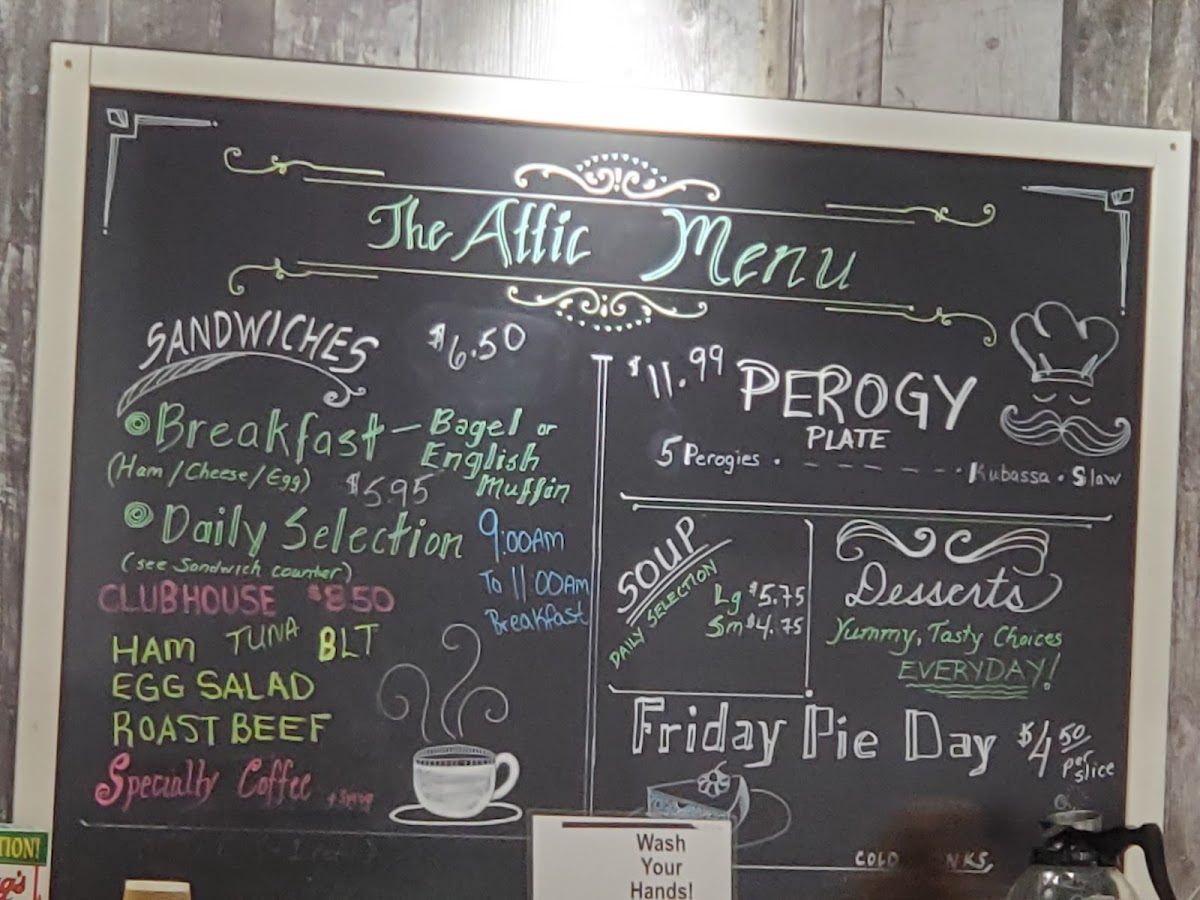 The Attic Menu
SANDWICHES $6.50
Breakfast - Bagel or
English
Muffin
(Ham/Cheese/Egg) $5.95
Daily Selection
(see Sandwich counter)
9:00AM
To 11:00AM
Breakfast
CLUBHOUSE $8.50
HAM TUNA BLT
EGG SALAD
ROAST BEEF
Specialty Coffee
$11.99 PEROGY
PLATE
5 Perogies . - - - - - - - . Kubassa . Slaw
SOUP
DAILY SELECTION
Lg $5.75
Sm $4.75
Desserts
Yummy, Tasty Choices
EVERYDAY!
Friday Pie Day $4.50
per
slice
COLD
Wash
Your
Hands!